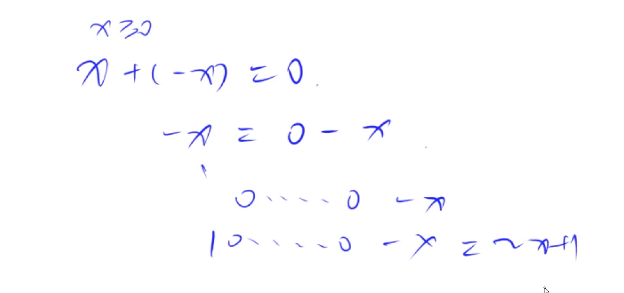 x ≥ 0
x + (-x) = 0.
-x = 0 - x
0 ..... 0 - x
1 0 ..... 0 - x = ~x+1